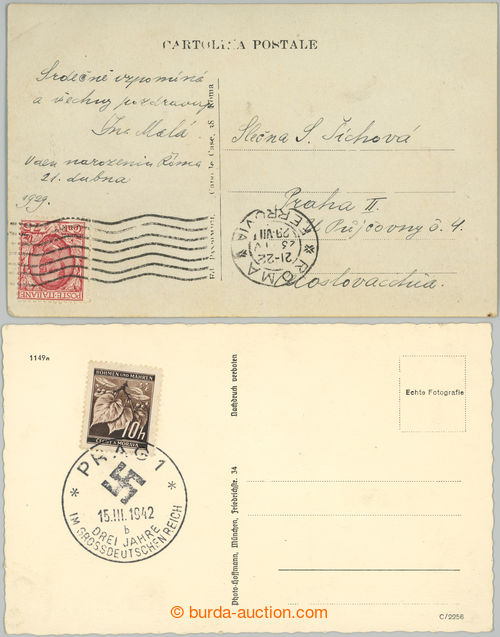 CARTOLINA POSTALE
Srdečně vzpomíná
a všechny pozdravuje
Ina Malá.
V den narozenin Říma
21. dubna
1929.
Slečna S. Tichová
Praha II.
Půjčovny č. 4.
Roma
POSTE ITALIANE
ROMA
FERROVIA
21-22
23 IV
29·VII
1149a
BÖHMEN UND MÄHREN
10h
ČECHY A MORAVA
PRAG 1
15.III.1942
b
DREI JAHRE
IM GROSSDEUTSCHEN REICH
Nachdruck verboten
Photo-Hoffmann, München, Friedrichstr. 34
Echte Fotografie
C/2256
© burda-auction.com